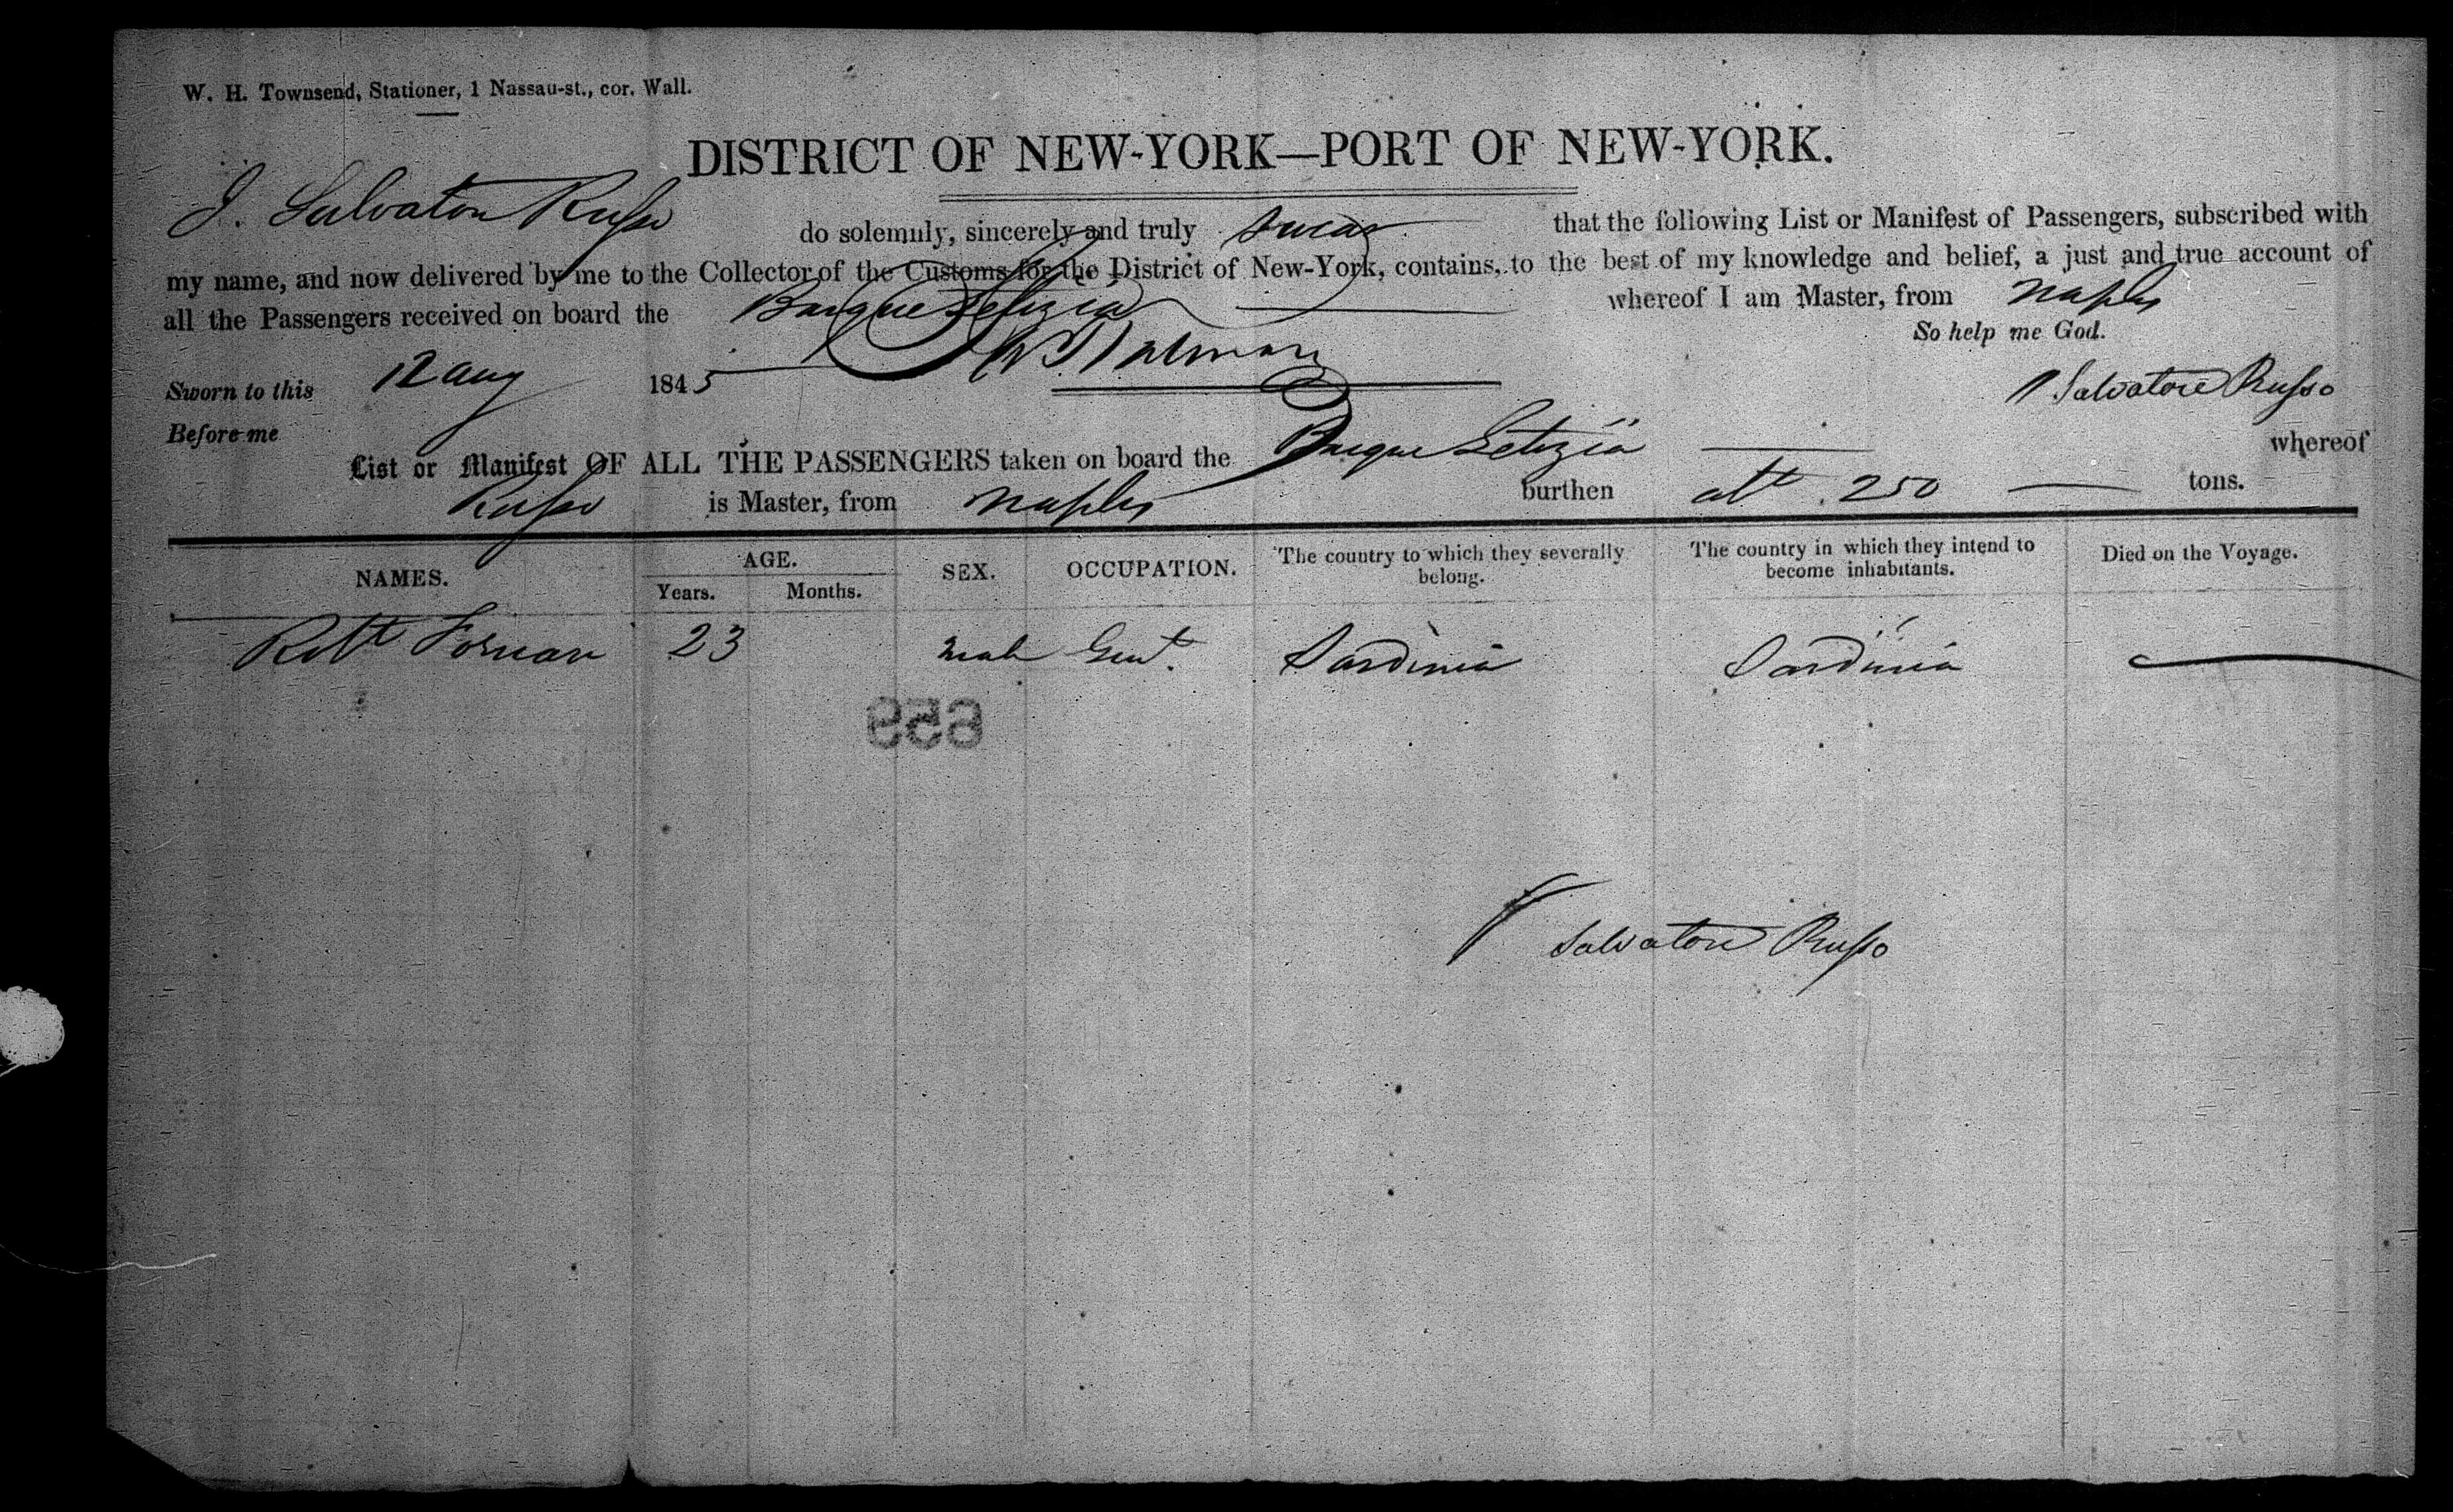 W. H. Townsend, Stationer, 1 Nassau-st., cor. Wall.
DISTRICT OF NEW-YORK—PORT OF NEW-YORK.
I. Salvatore Russo do solemnly, sincerely and truly swear that the following List or Manifest of Passengers, subscribed with
my name, and now delivered by me to the Collector of the Customs for the District of New-York, contains, to the best of my knowledge and belief, a just and true account of
all the Passengers received on board the Barque Letizia whereof I am Master, from Naples
So help me God.
Sworn to this 12 Aug 1845 Salvatore Russo
Before me
List or Manifest OF ALL THE PASSENGERS taken on board the Barque Letizia whereof
Russo is Master, from Naples burthen abt 250 tons.
NAMES. AGE. SEX. OCCUPATION. The country to which they severally belong. The country in which they intend to become inhabitants. Died on the Voyage.
Years. Months.
Robt 23 Male Gent. Sardinia Sardinia
659
Salvatore Russo